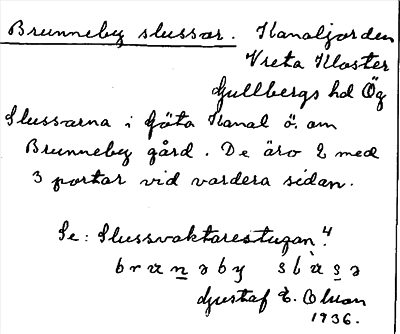 Brunneby slussar. Kanaljorden
Vreta Kloster
Gullbergs hd Ög
Slussarna i Göta Kanal ö. om
Brunneby gård. De äro 2 med
3 portar vid vardera sidan.
Se: Slussvaktarestugan 4.
Gustaf E. Olson
1936.